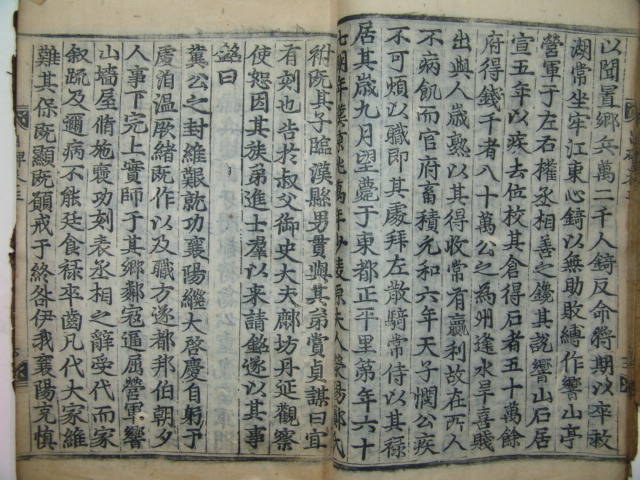 以聞置鄉兵萬二千人錡反命將期以卒救
湖常坐牢江東心錡以無助敗縛作響山亭
營軍于左右權丞相善之鑱其說響山石居
宣五年以疾去位校其倉得石者五十萬餘
府得錢千者八十萬公之為州逢水旱喜賤
出與人歲熟以其得收常有贏利故在所人
不病飢而官府畜積元和六年天子憫公疾
不可煩以職即其處拜左散騎常侍以其祿
居其歲九月望薨于東都正平里第年六十
七明年葬京兆萬年少陵原夫人滎陽鄭氏
祔既其子臨漢縣男貫與其弟賞貞謀曰宜
有刻也告於叔父御史大夫鄜坊丹延觀察
使恕因其族弟進士羣以來請銘遂以其事
銘曰
冀公之封維艱就功襄陽纘大啓慶自躬于
虔洎溫厥緒既作以及職方遂都邦伯朝夕
人事下完上實師于其鄉鄰寇逼屈營軍響
山墻屋脩施贖功刻表丞相之辭受代而家
叙疏及邇病不能廷食祿卒齒凡代大家維
難其保既顯既願戒于終咎伊我襄陽克慎